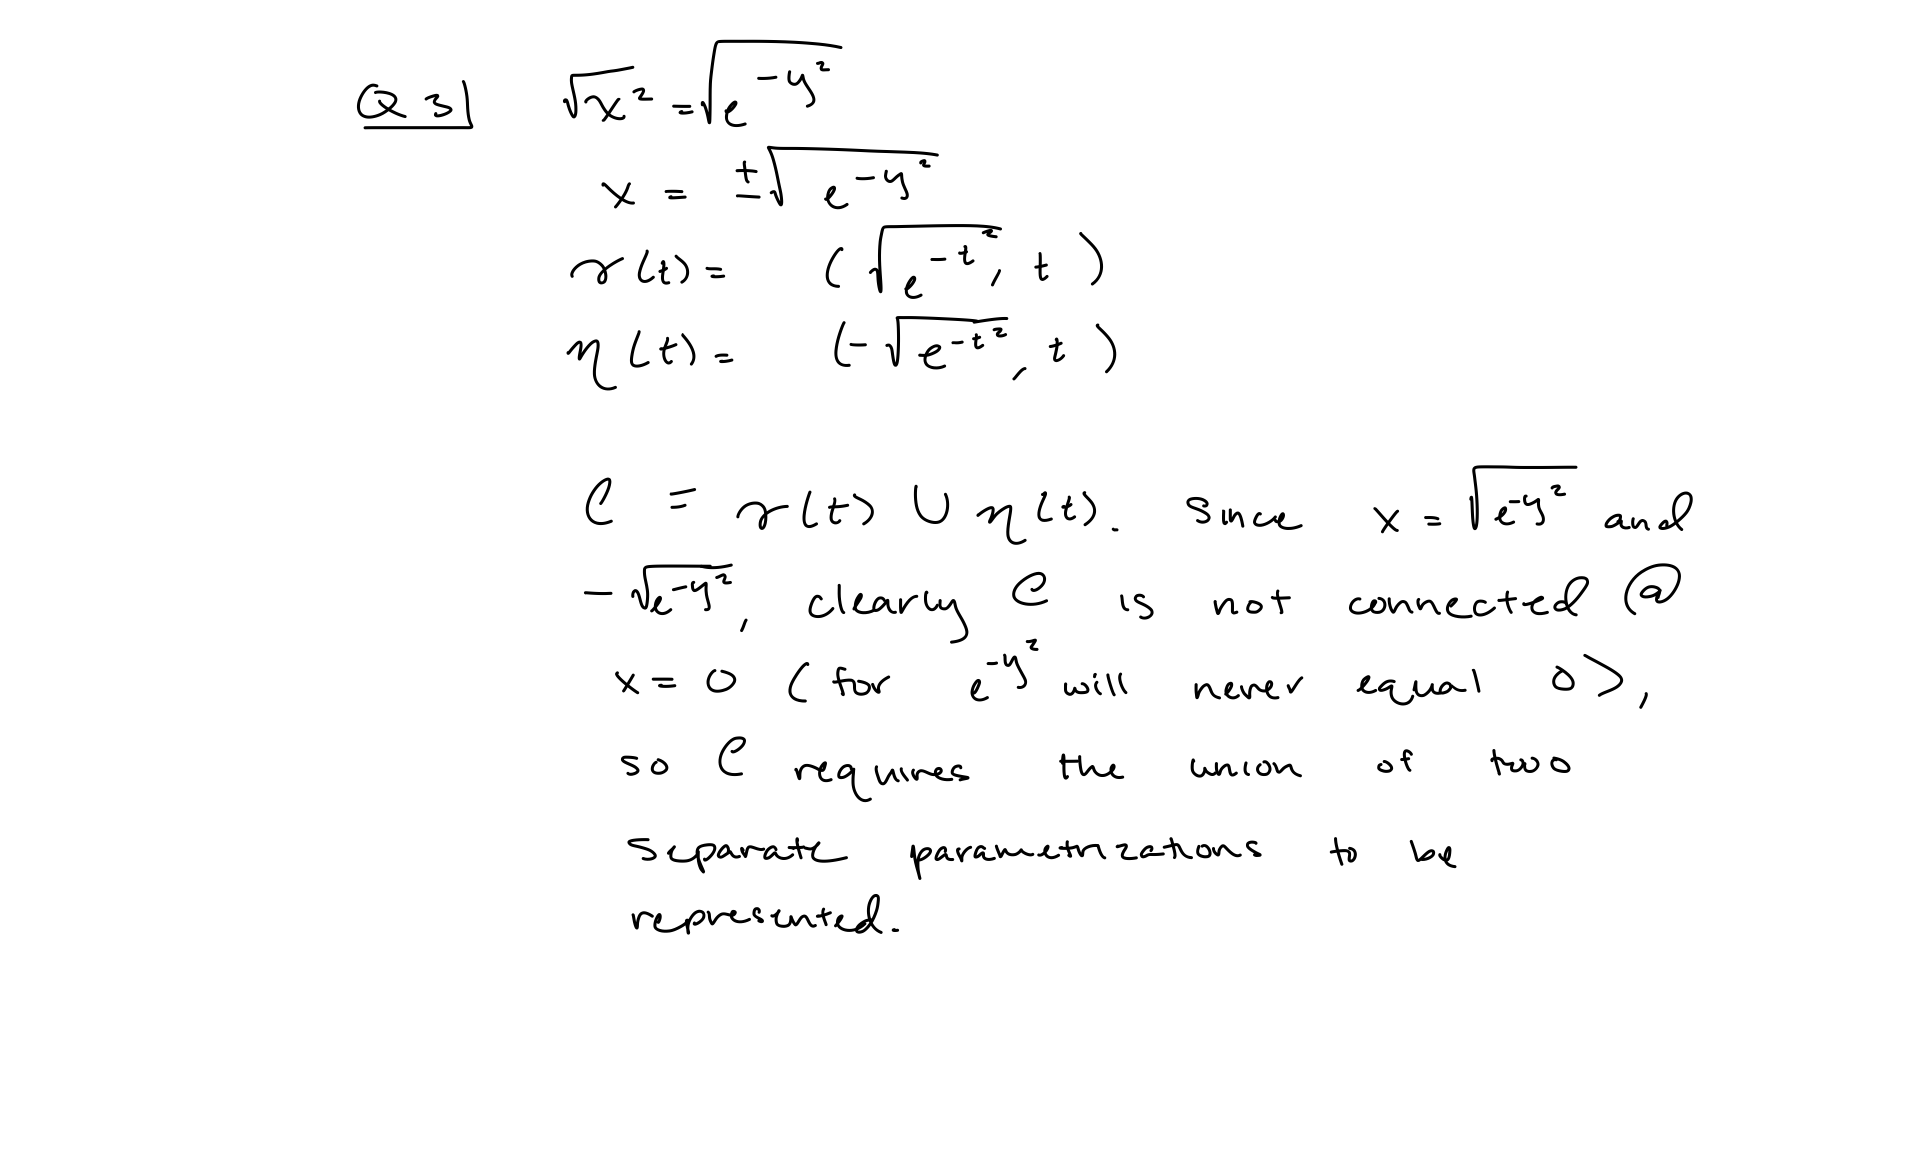 Q3| √x² = √e^-y²
x = ±√e^-y²
γ(t) = (√e^-t², t)
η(t) = (-√e^-t², t)
C = γ(t) ∪ η(t). Since x = √e^-y² and
-√e^-y², clearly C is not connected @
x = 0 (for e^-y² will never equal 0),
so C requires the union of two
separate parametrizations to be
represented.